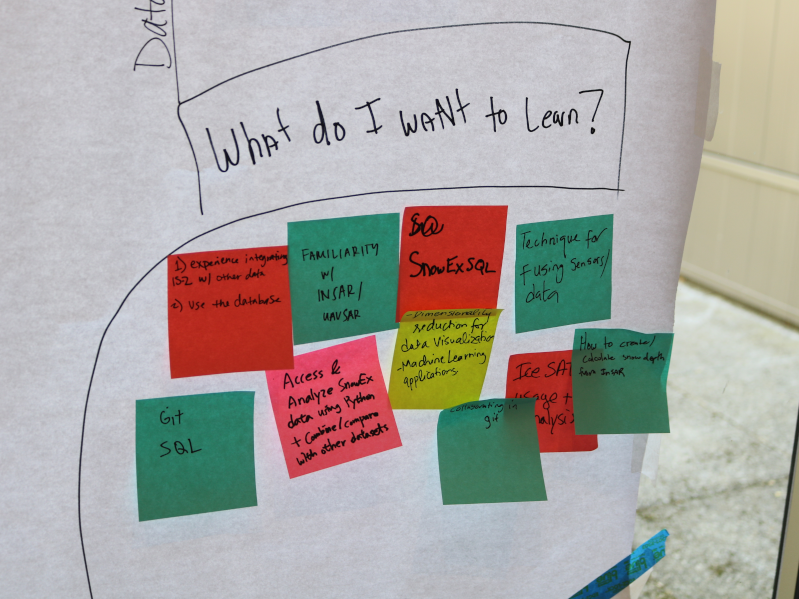 Data
What do I WANt to Learn?
1) experience integrating
IS-2 w/ other data
2) Use the database
FAMILIARITY
w/
INSAR/
UAVSAR
SnowExSQL
Technique for
fusing sensors/
data
- Dimensionality
reduction for
data visualization
- Machine Learning
applications
How to create/
calculate snow depth
from InSAR
Ice SAT
usage +
analysis
Access &
Analyze SnowEx
data using Python
+ Combine/compare
with other datasets
Git
SQL
collaborating in
git